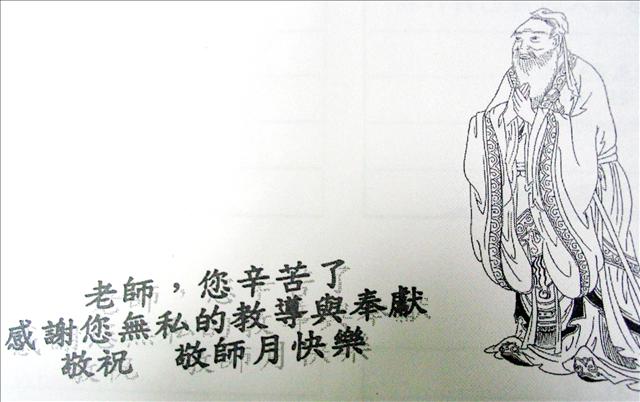 老師，您辛苦了
感謝您無私的教導與奉獻
敬祝　敬師月快樂